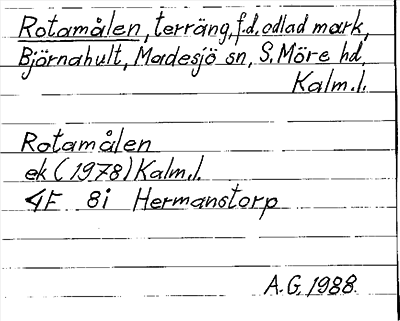 Rotamålen, terräng, f.d. odlad mark,
Björnahult, Madesjö sn, S. Möre hd,
Kalm. l.
Rotamålen
ek (1978) Kalm. l.
4F 8i Hermanstorp
A.G. 1988